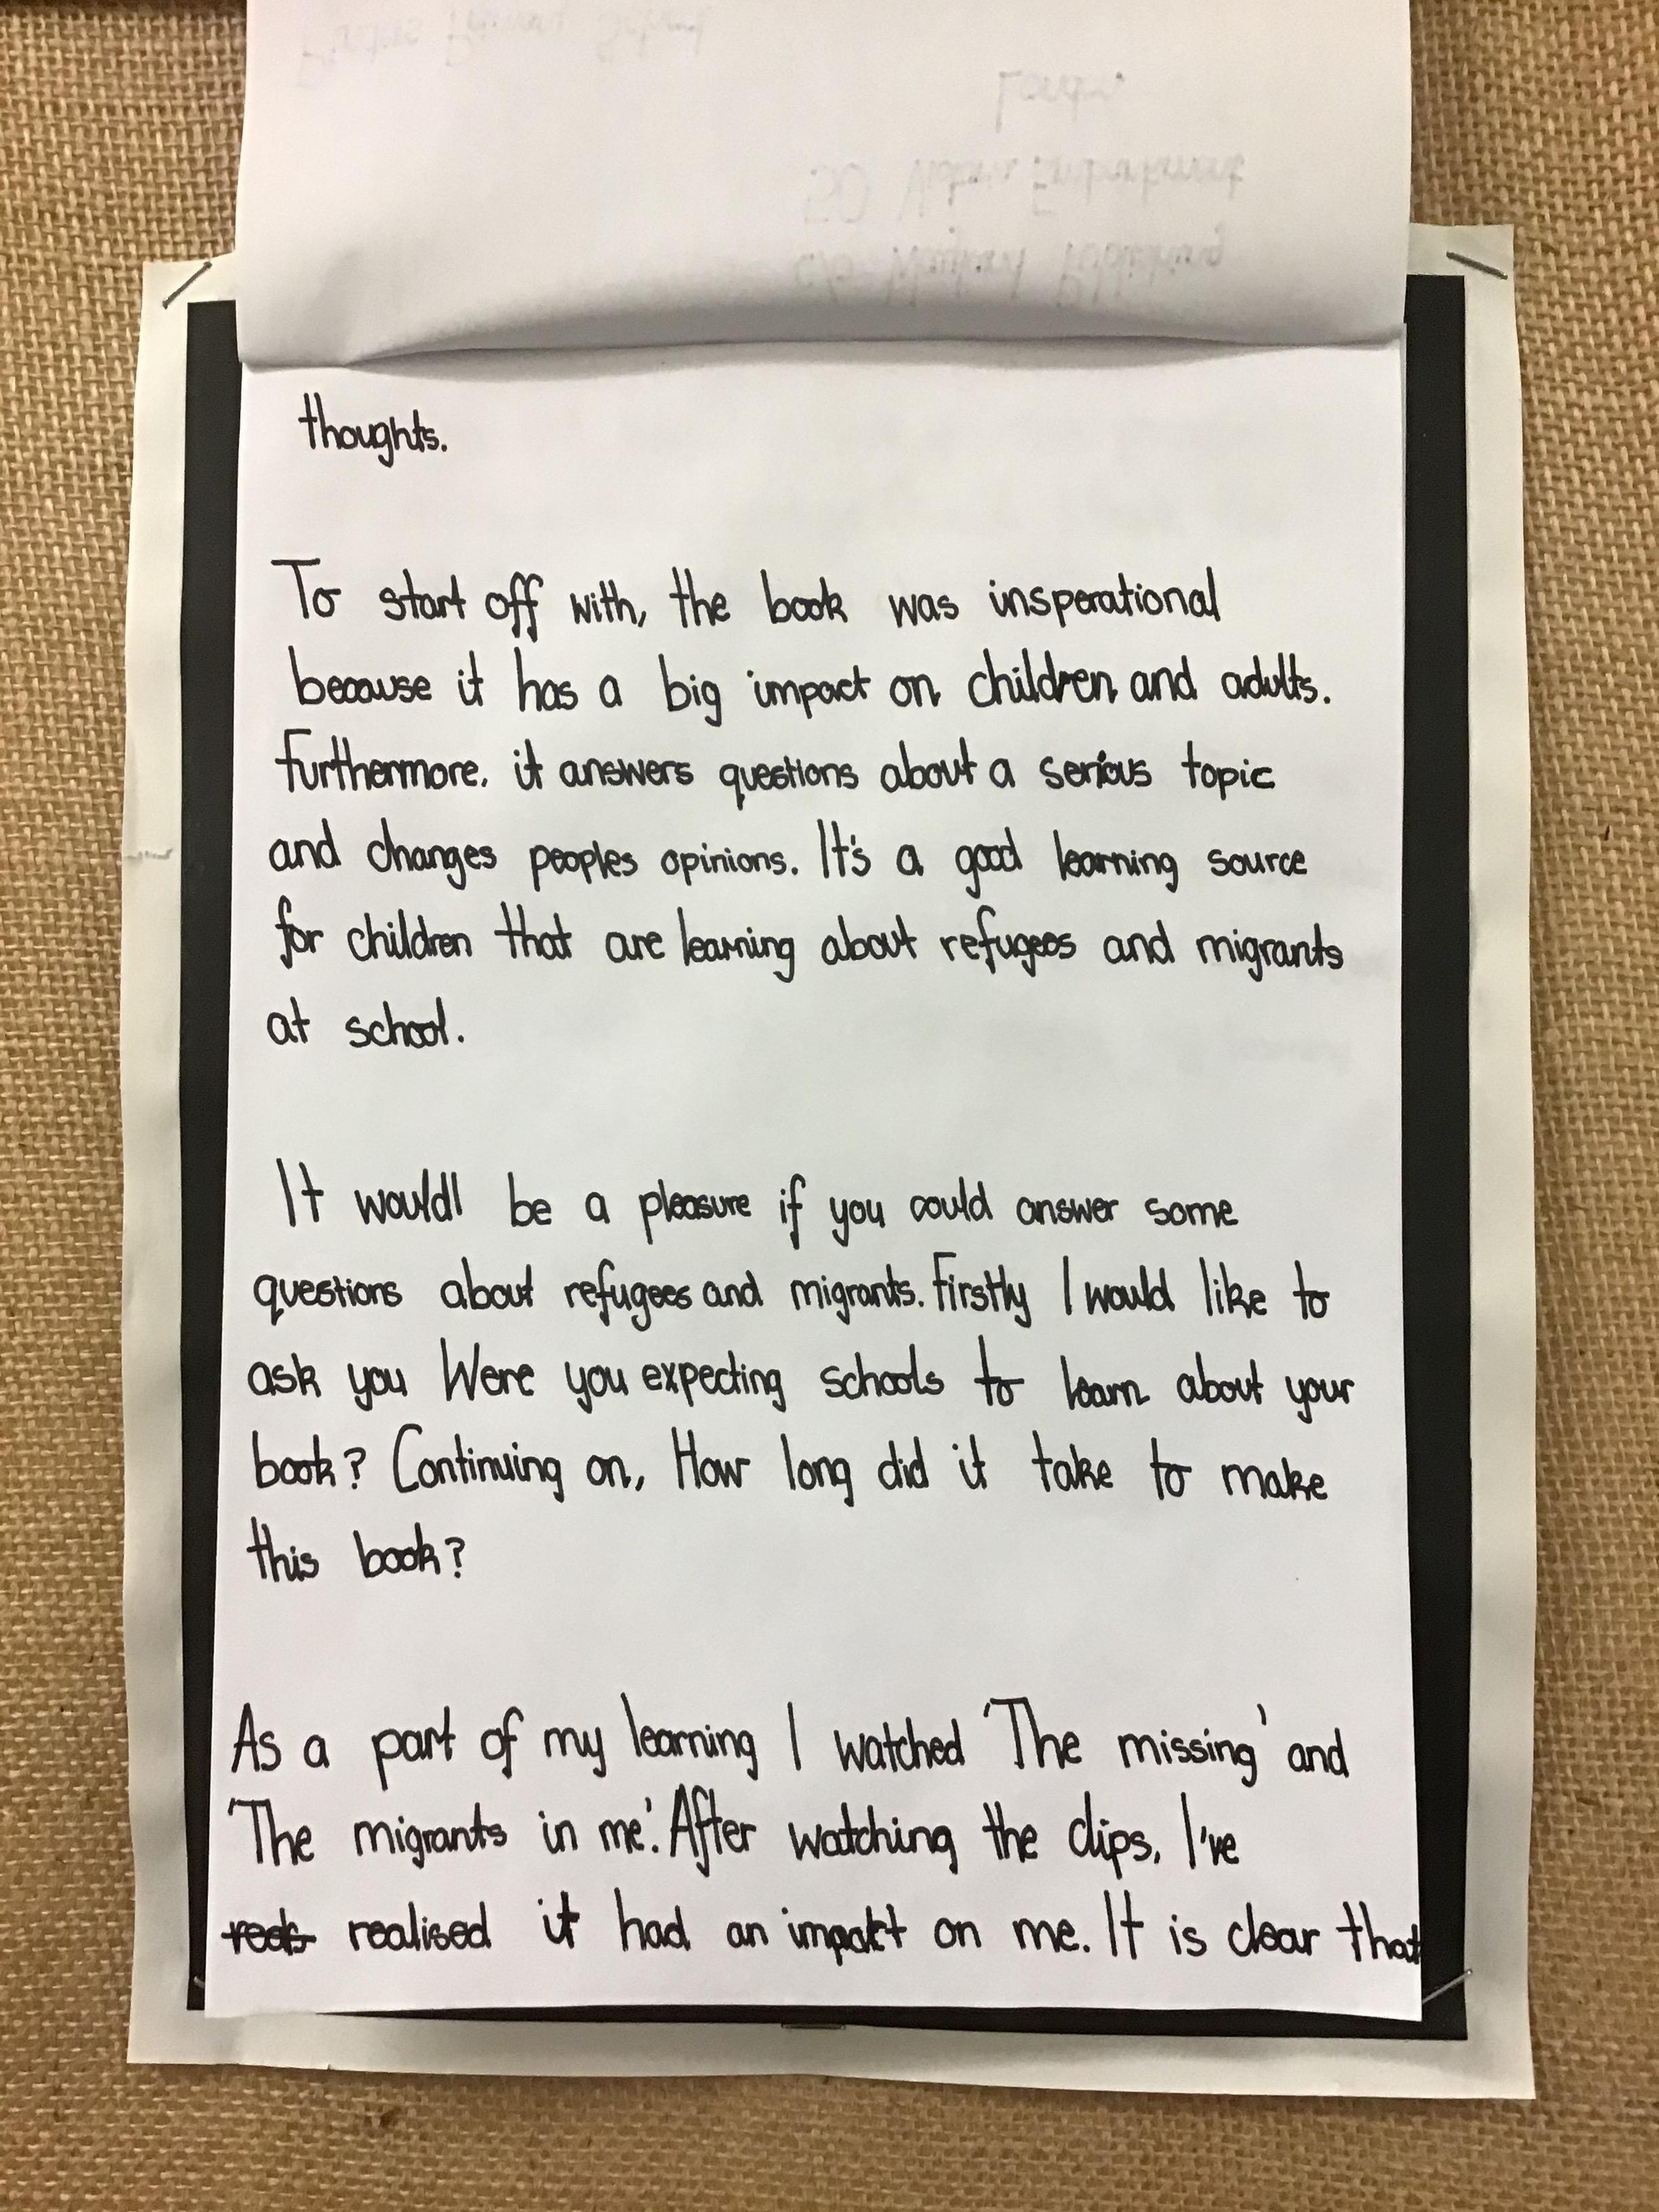 thoughts.
To start off with, the book was insperational
because it has a big impact on children and adults.
Furthermore, it answers questions about a serious topic
and changes peoples opinions. It's a good learning source
for children that are learning about refugees and migrants
at school.
It would be a pleasure if you could answer some
questions about refugees and migrants. Firstly I would like to
ask you Were you expecting schools to learn about your
book? Continuing on, How long did it take to make
this book?
As a part of my learning I watched 'The missing' and
'The migrants in me'. After watching the clips, I've
realised it had an impact on me. It is clear that